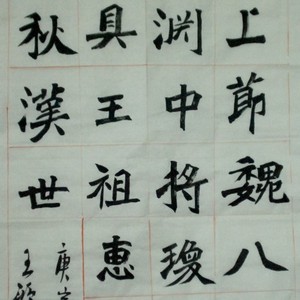 上節魏八
渊中將瓊
具王祖惠
秋漢世
庚
王